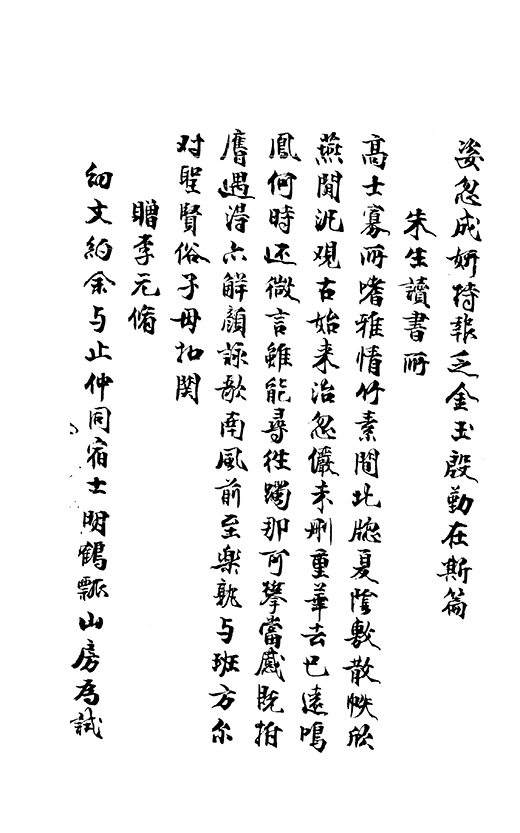 姿忽成妍持報乏金玉殷勤在斯篇
朱生讀書所
高士寡所嗜雅情竹素間北牕夏陰敷散帙欣
燕閒汎觀古始来治忽儼未刪重華去已遠鳴
鳳何時还微言雖能尋往躅那可攀當感既拊
膺遇得亦解顏詠歌南風前至樂孰与班方尔
对聖賢俗子毋扣関
贈李元脩
細文約余与止仲同宿士明鶴瓢山房為試